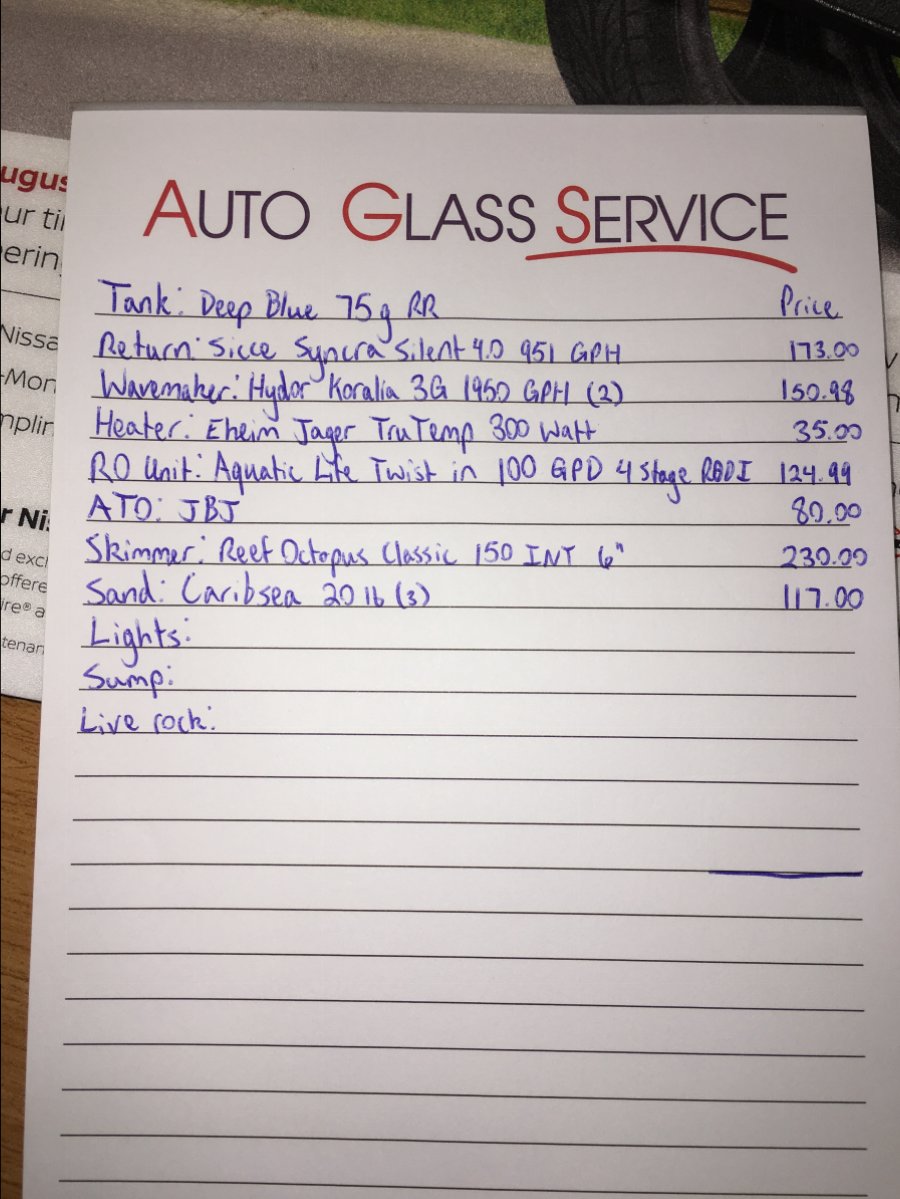 ugus
ur ti
erin
AUTO GLASS SERVICE
Tank: Deep Blue 75g RR Price
Return: Sicce Syncra Silent 4.0 951 GPH 173.00
Wavemaker: Hydor Koralia 3G 1950 GPH (2) 150.98
Heater: Eheim Jager TruTemp 300 Watt 35.00
RO Unit: Aquatic Life Twist in 100 GPD 4 Stage RODI 124.99
ATO: JBJ 80.00
Skimmer: Reef Octopus Classic 150 INT 6" 230.00
Sand: Caribsea 20 lb (3) 117.00
Lights:
Sump:
Live rock:
Nissa
-Mon
mplin
r Nis
d excl
offere
ire® a
tenan